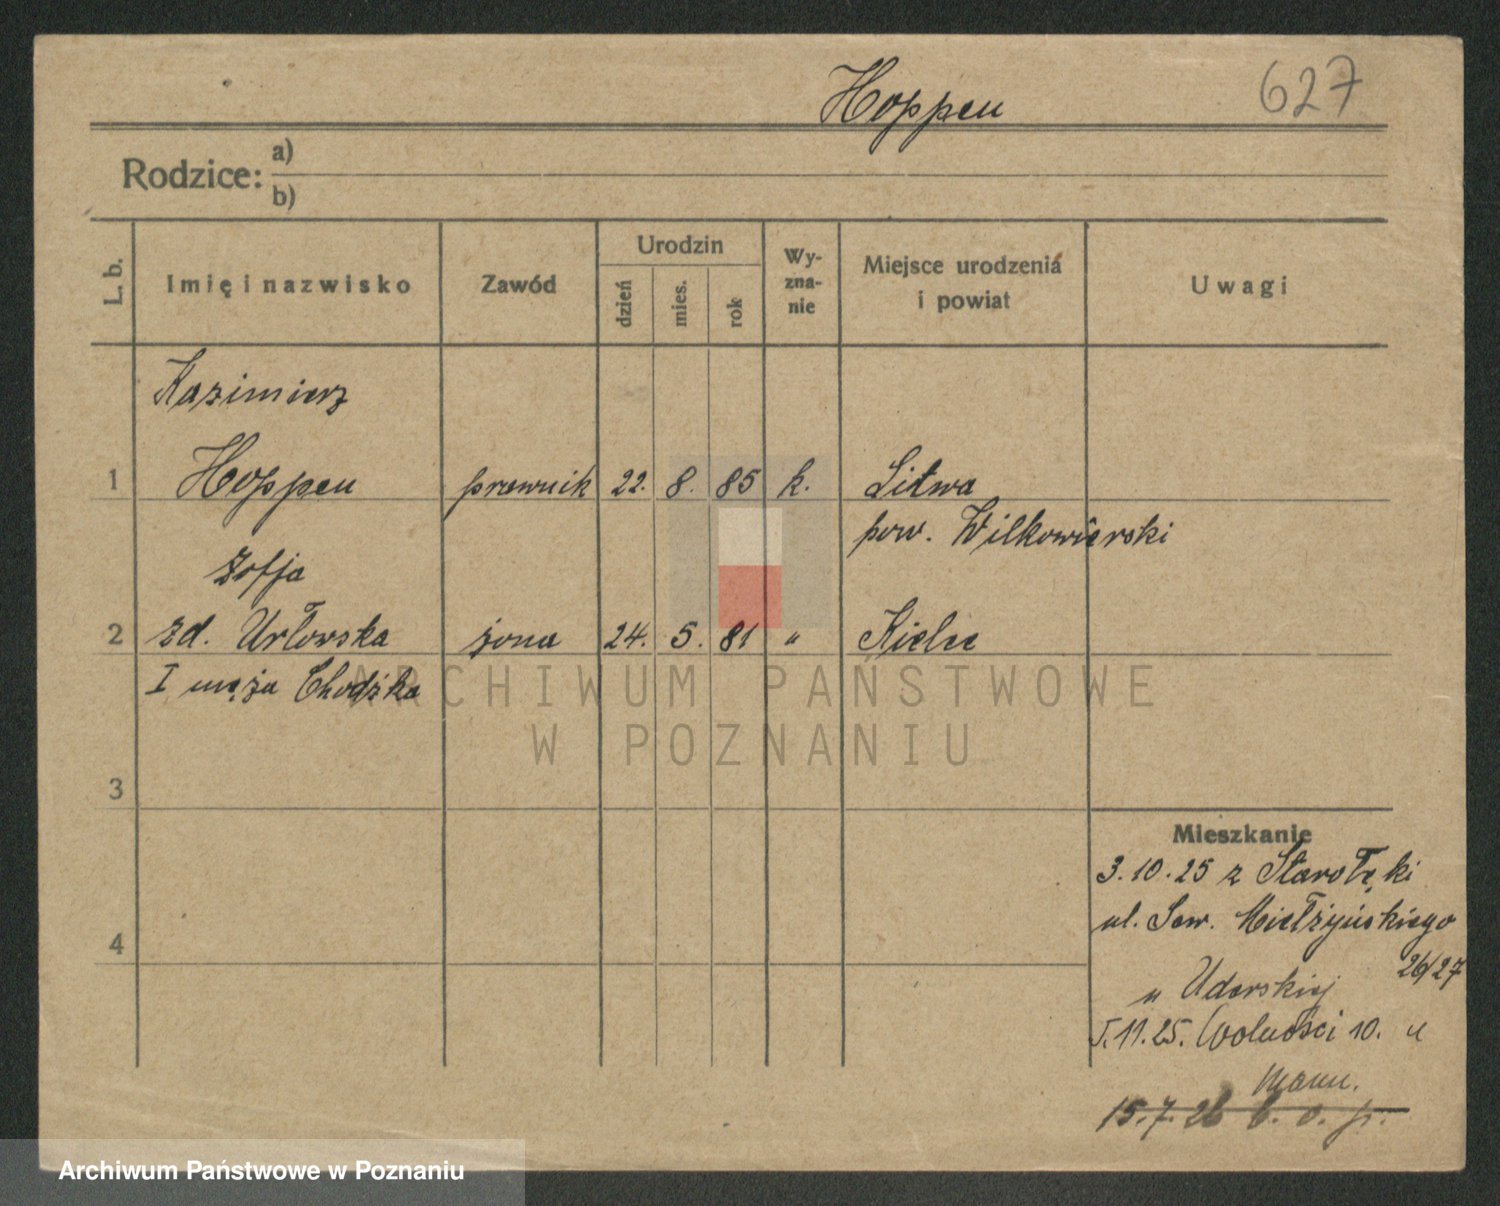 Hoppen 627
Rodzice: a)
b)
L. b. Imię i nazwisko Zawód Urodzin dzień mies. rok Wy-zna-nie Miejsce urodzenia i powiat Uwagi
Kazimierz
1 Hoppen prawnik 22. 8. 85 k. Litwa
pow. Wilkowierski
Zofja
2 zd. Urłowska żona 24. 5. 81 " Kielce
I męża Chodźka
ARCHIWUM PAŃSTWOWE
W POZNANIU
3
Mieszkanie
3.10.25 z Starołęki
ul. Sew. Mielżyńskiego
26/27
4
u Uderskiej
5.11.25. Wolności 10. u
Mann.
15.7.26 b. o. p.
Archiwum Państwowe w Poznaniu